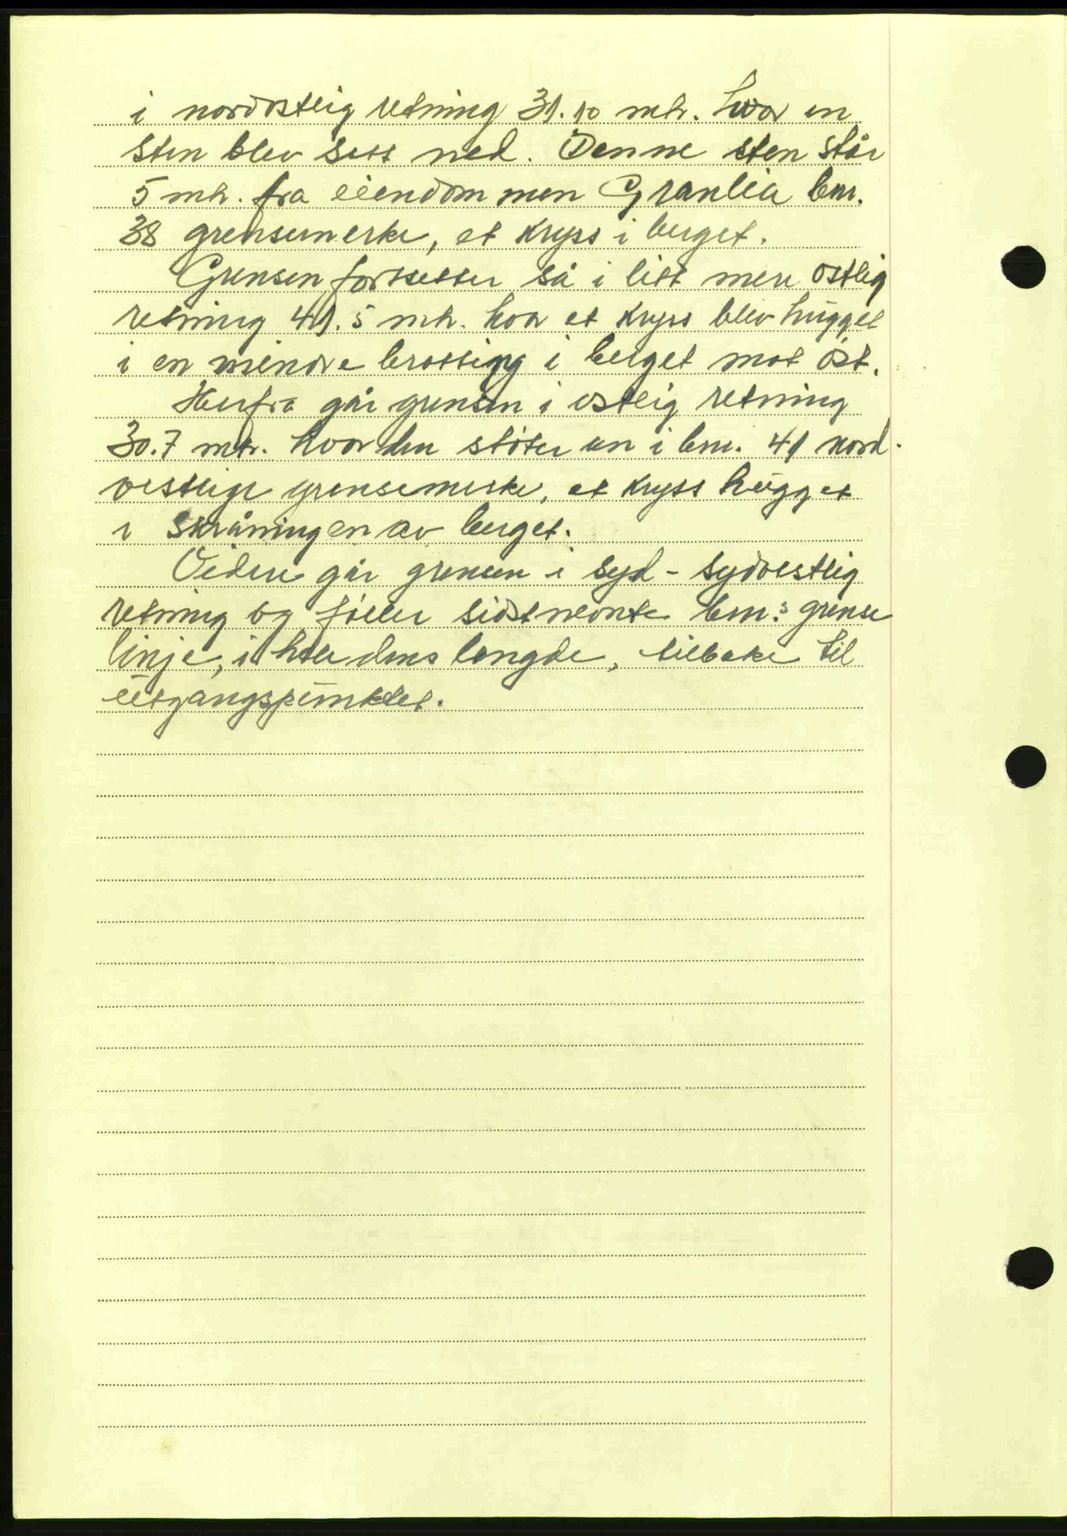 i nordøstlig retning 31.10 mtr. hvor en
sten blev satt ned. Denne sten står
5 mtr. fra eiendommen Granlia bnr.
38 grensemerke, et kryss i berget.
Grensen fortsetter så i litt mer østlig
retning 41.5 mtr. hvor et kryss blev hugget
i en mindre brotting i berget mot øst.
Herfra går grensen i østlig retning
30.7 mtr. hvor den støter an i bnr. 41 nord-
vestlige grensemerke, et kryss hugget
i skråningen av berget.
Videre går grensen i syd - sydvestlig
retning og følger sidstnevnte bnr.s grense
linje, i hele dens lengde, tilbake til
utgangspunktet.